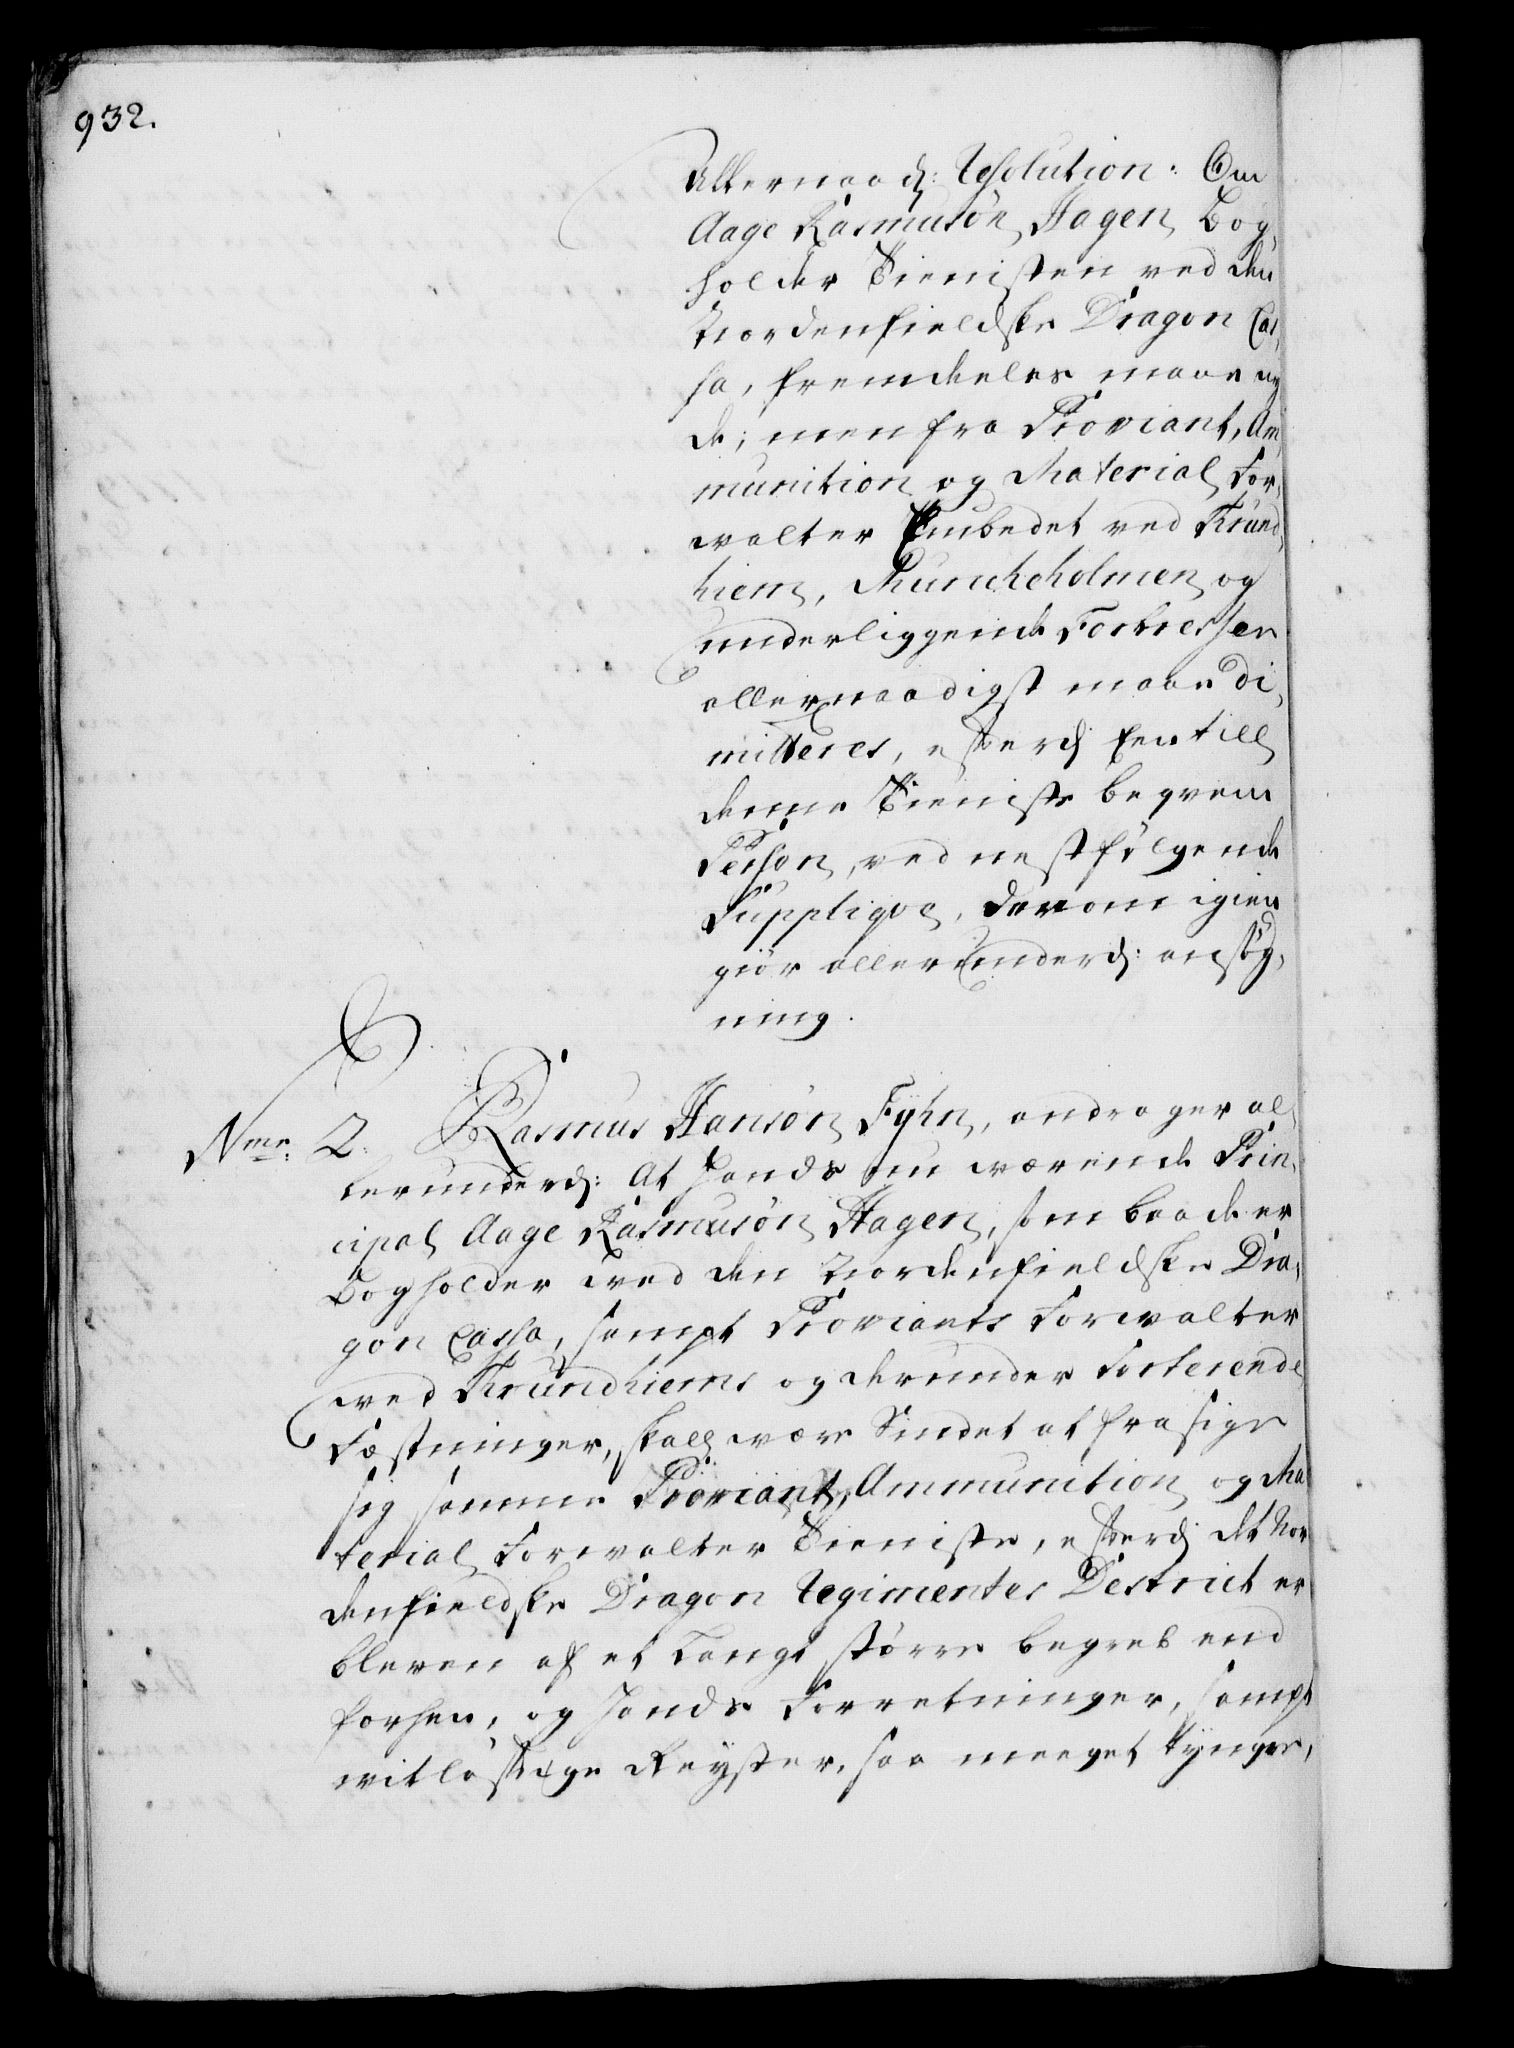 932.
Allernaad: Resolution: Om
Aage Rasmusøn Hagen Bog,
holder Tienisten ved den
Nordenfieldske Dragon Cas,
sa, fremdeeles maae ny
de; men fra Proviant, Am,
munition og Material For,
walter Embedet ved Trund,
hiem, Munckholmen og
underliggende Fortresser
allernaadigst maae di,
mitteres, efterdj Een till
denne Tieniste beqvem
Person, ved nestfølgende
Suppliqve, derom igien
giør allerunderd: ansøg,
ning.
Nmr: 2. Rasmus Hansøn Fyhn, andrager al,
lerunderd: At Hands nu værende Prin,
cipal Aage Rasmusøn Hagen, som baade er
Bogholder ved den Nordenfieldske Dra,
gon Cassa, sampt Proviants Forwalter
ved Trundhiems og derunder sorterende
Fæstninger, skall være Sindet at frasige
sig samme Proviant, Ammunition og Ma
terial Forwalter Tieniste, efterdj det Nor
denfieldske Dragon Regimentes District er
bleven af et langt større begreb end
forhen, og Hands Forretninger, sampt
vitløftige Reyser, saa meeget tynger,